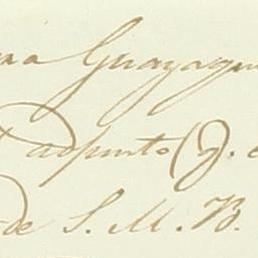 Guayaqu
adjunto (J.
de S. M. B.